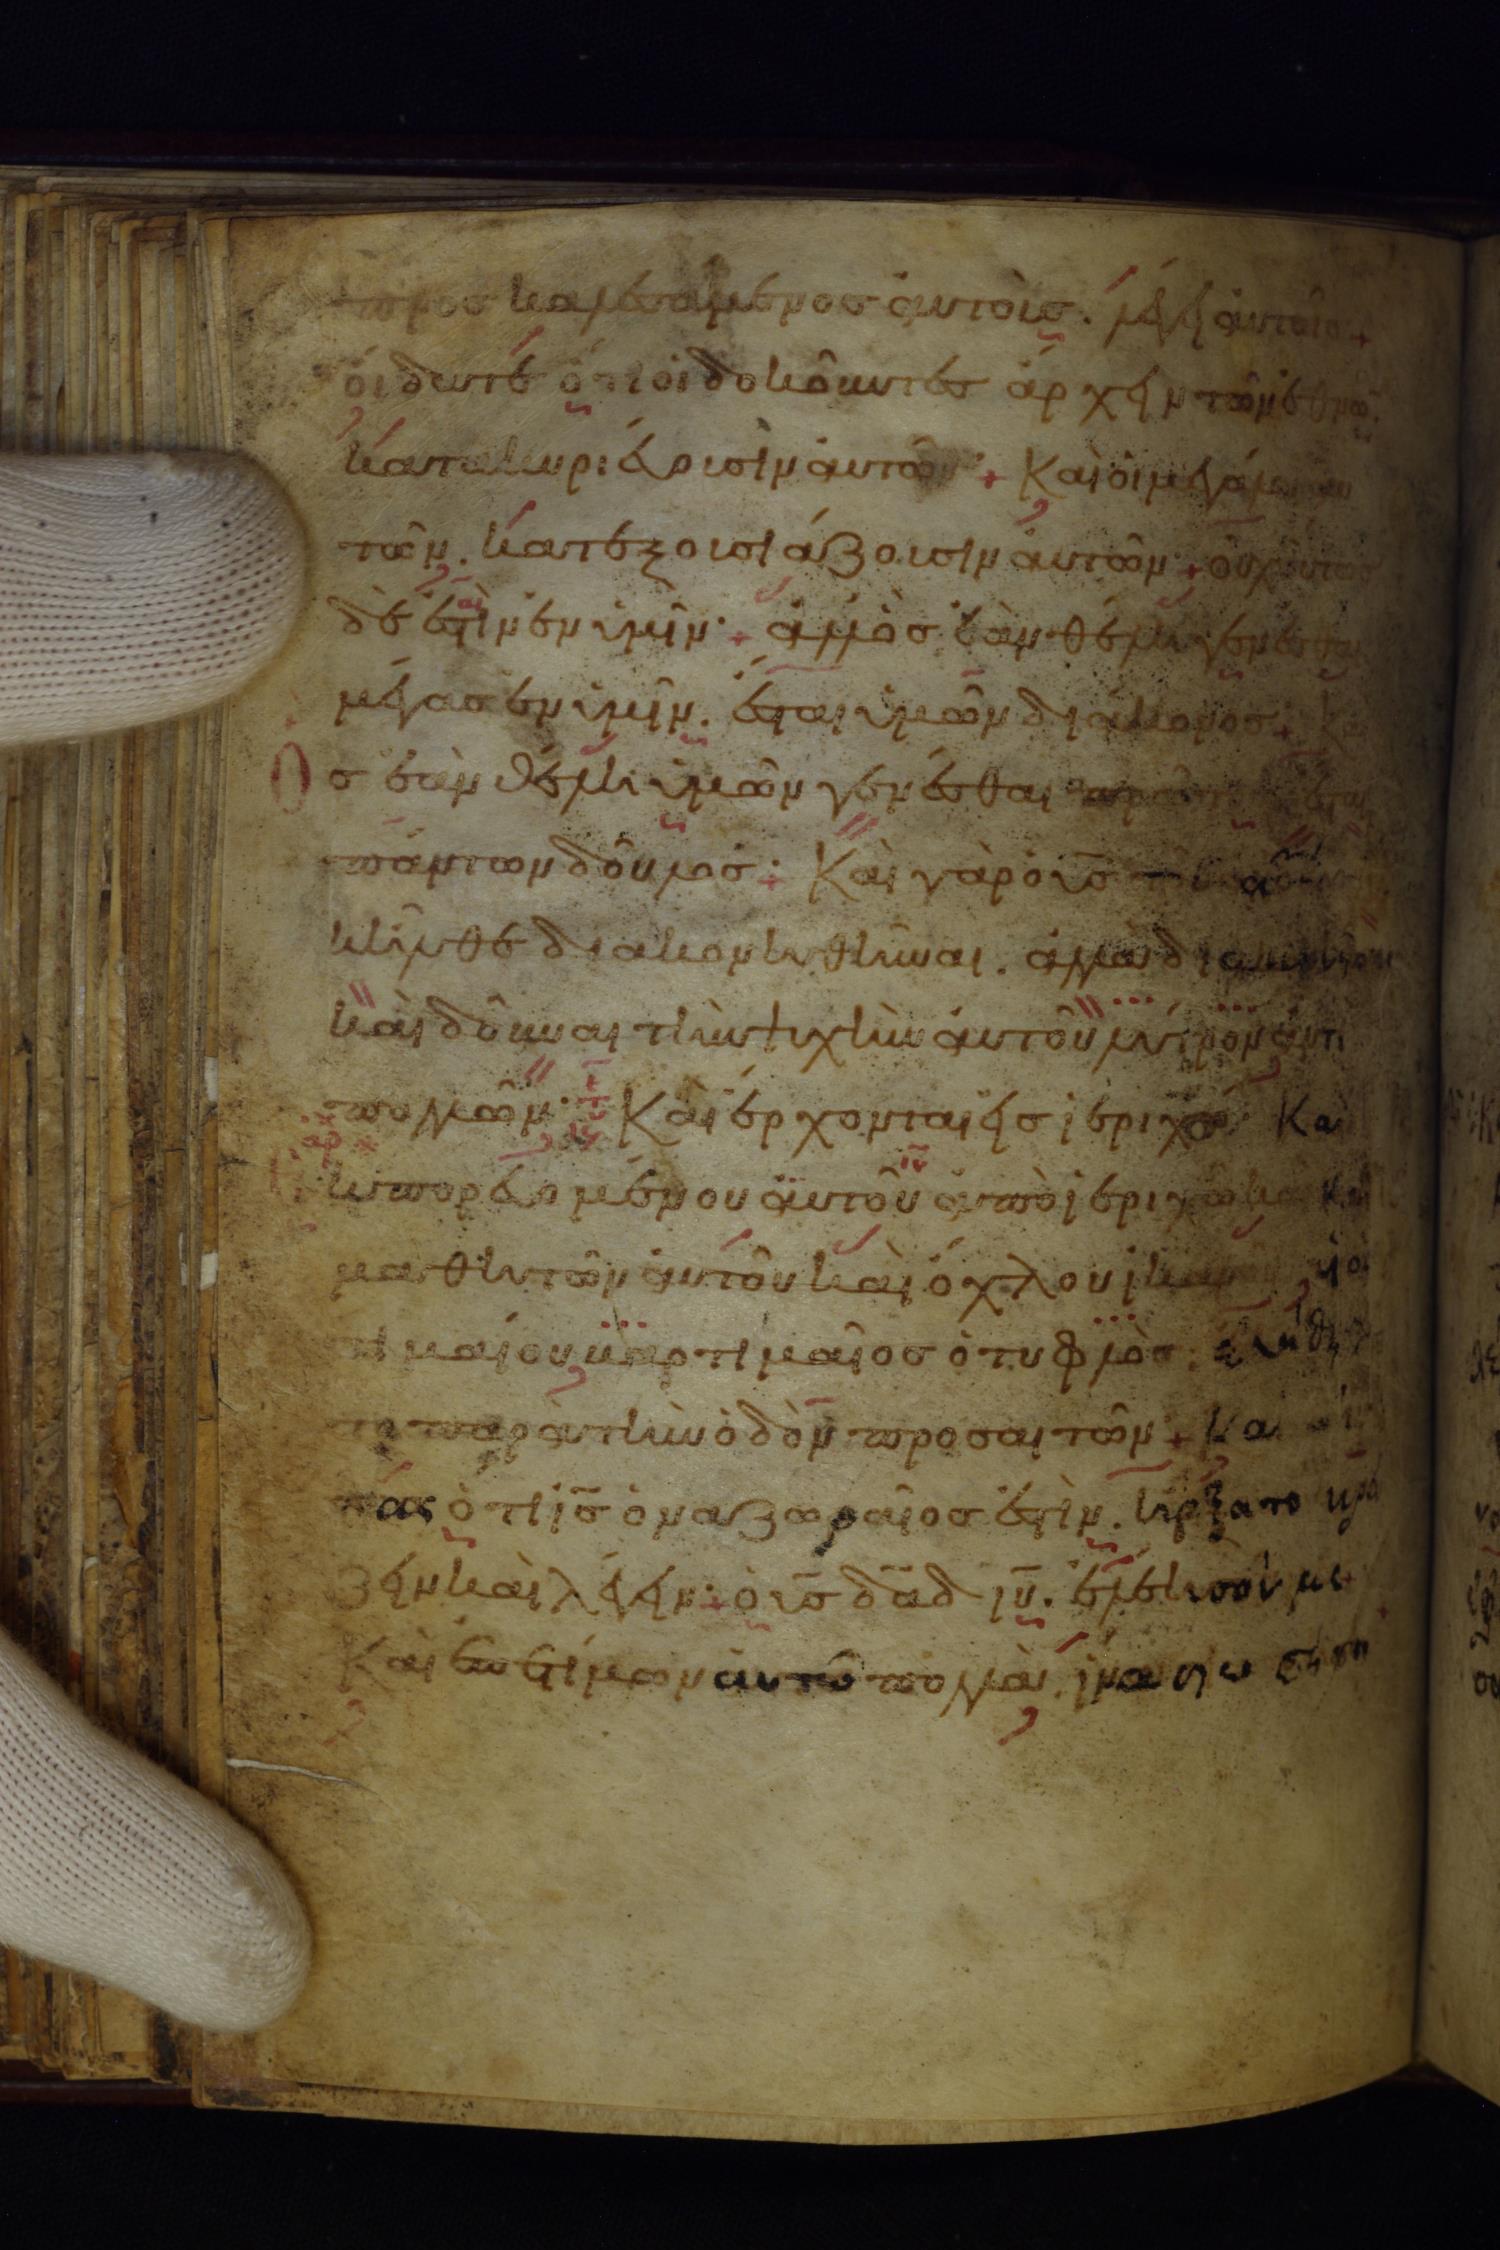 καλεσάμενος ἀυτοὶς. λέγει ἀυτοῖς +
ὁιδατε ὅτι ὁι δοκοῦντες ἄρχειν τῶν ἐθνῶ̅.
κατακυριέυουσιν ἀυτῶν + Καὶ ὁι μεγάλοι ἀυ
τῶν. κατεξουσιάζουσιν ἀυτῶν + ὀυχ ὅυτως
δὲ ἐστὶν ἐν ὑμῖν· + ἀλλ ὃς ἐὰν θέλη γενέσθαι
μέγας ἐν ὑμῖν. ἔσται ὑμῶν διάκονος + Καὶ
Ὃς ἐὰν θέλη ὑμῶν γενέσθαι πρῶτος ἔσται
πάντων δοῦλος + Καὶ γὰρ ὁ υ̅ς̅ τοῦ α̅ν̅ου
ἦλθε διακονηθῆναι. ἀλλὰ διακονῆσαι
καὶ δοῦναι τὴν ψυχὴν ἀυτοῦ λύτρον ἀντι
πολλῶν· + Καὶ ἔρχονται εις ἱεριχώ Καὶ
ἐκπορευομένου ἀυτοῦ ἀπὸ ἱεριχῶ καὶ
μαθητῶν ἀυτοῦ καὶ ὄχλου ἱκανοῦ υἱὸς
τιμαίου βαρτιμαῖος ὁ τυφλὸς. ἐκάθη
το παρὰ τὴν ὁδὸν προσαιτῶν + Καὶ ἀκού
σας ὅτι ι̅ς̅ ὁ ναζωραῖος ἐστὶν. ἤρξατο κρά
ζειν καὶ λέγειν· + ὁ υ̅ς̅ δ̅α̅δ̅ ι̅υ̅. ἐλέησόν με +
Καὶ ἐπετίμων ἀυτῶ πολλὰὶ. ἵνα σιωπήση